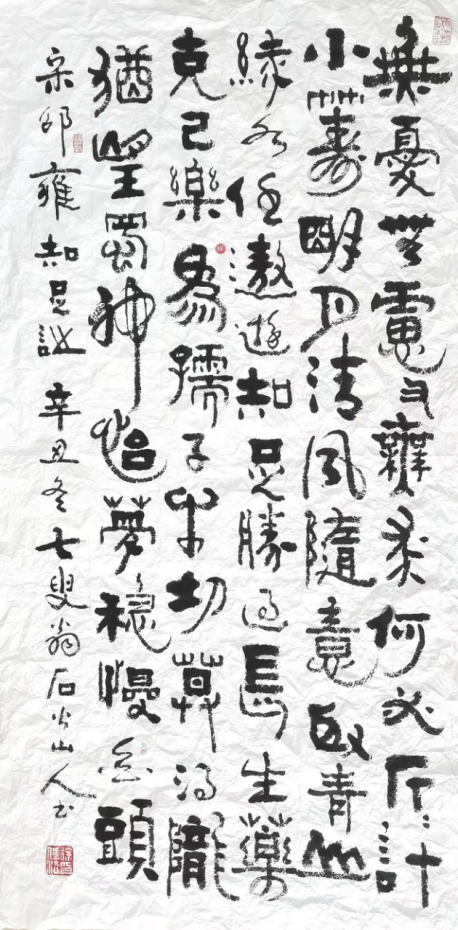 無憂無慮又無求何必斤〻計
小籌明月清風隨意取青山
綠水任遨遊知足勝過長生藥
克己樂為孺子牛切莫得隴
猶望蜀神怡夢穩慢白頭
宋邵雍知足詩辛丑冬七叟翁石火山人书